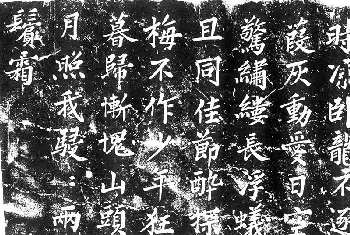 卧龍不逐
葭灰動愛日空
驚繡縷長浮蟻
且同佳節醉探
梅不作少年狂
暮歸慚愧山頭
月照我駸〻兩
鬢霜